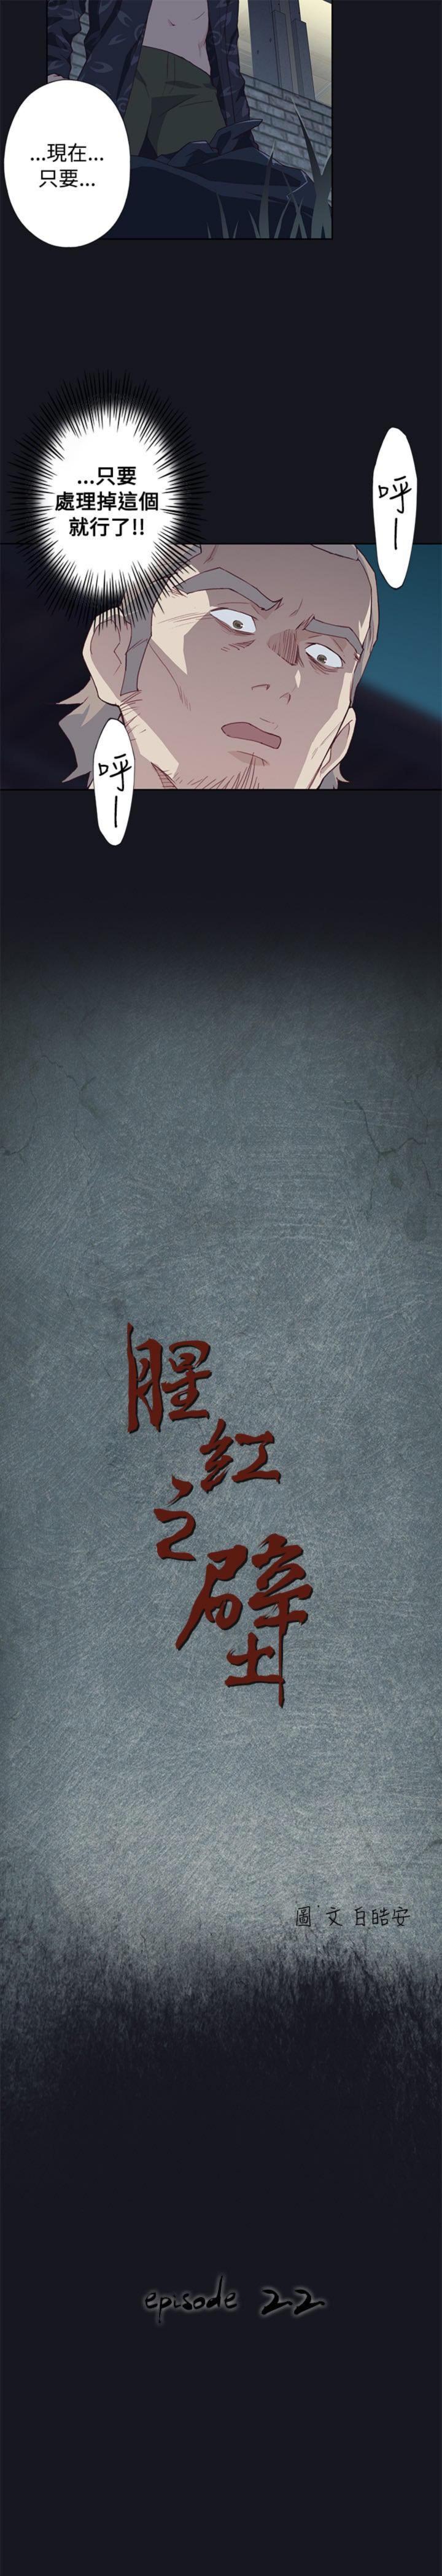 ...現在...
只要...
...只要
處理掉這個
就行了!!
呼—
呼—
腥紅之壁
圖‧文 白皓安
episode 22